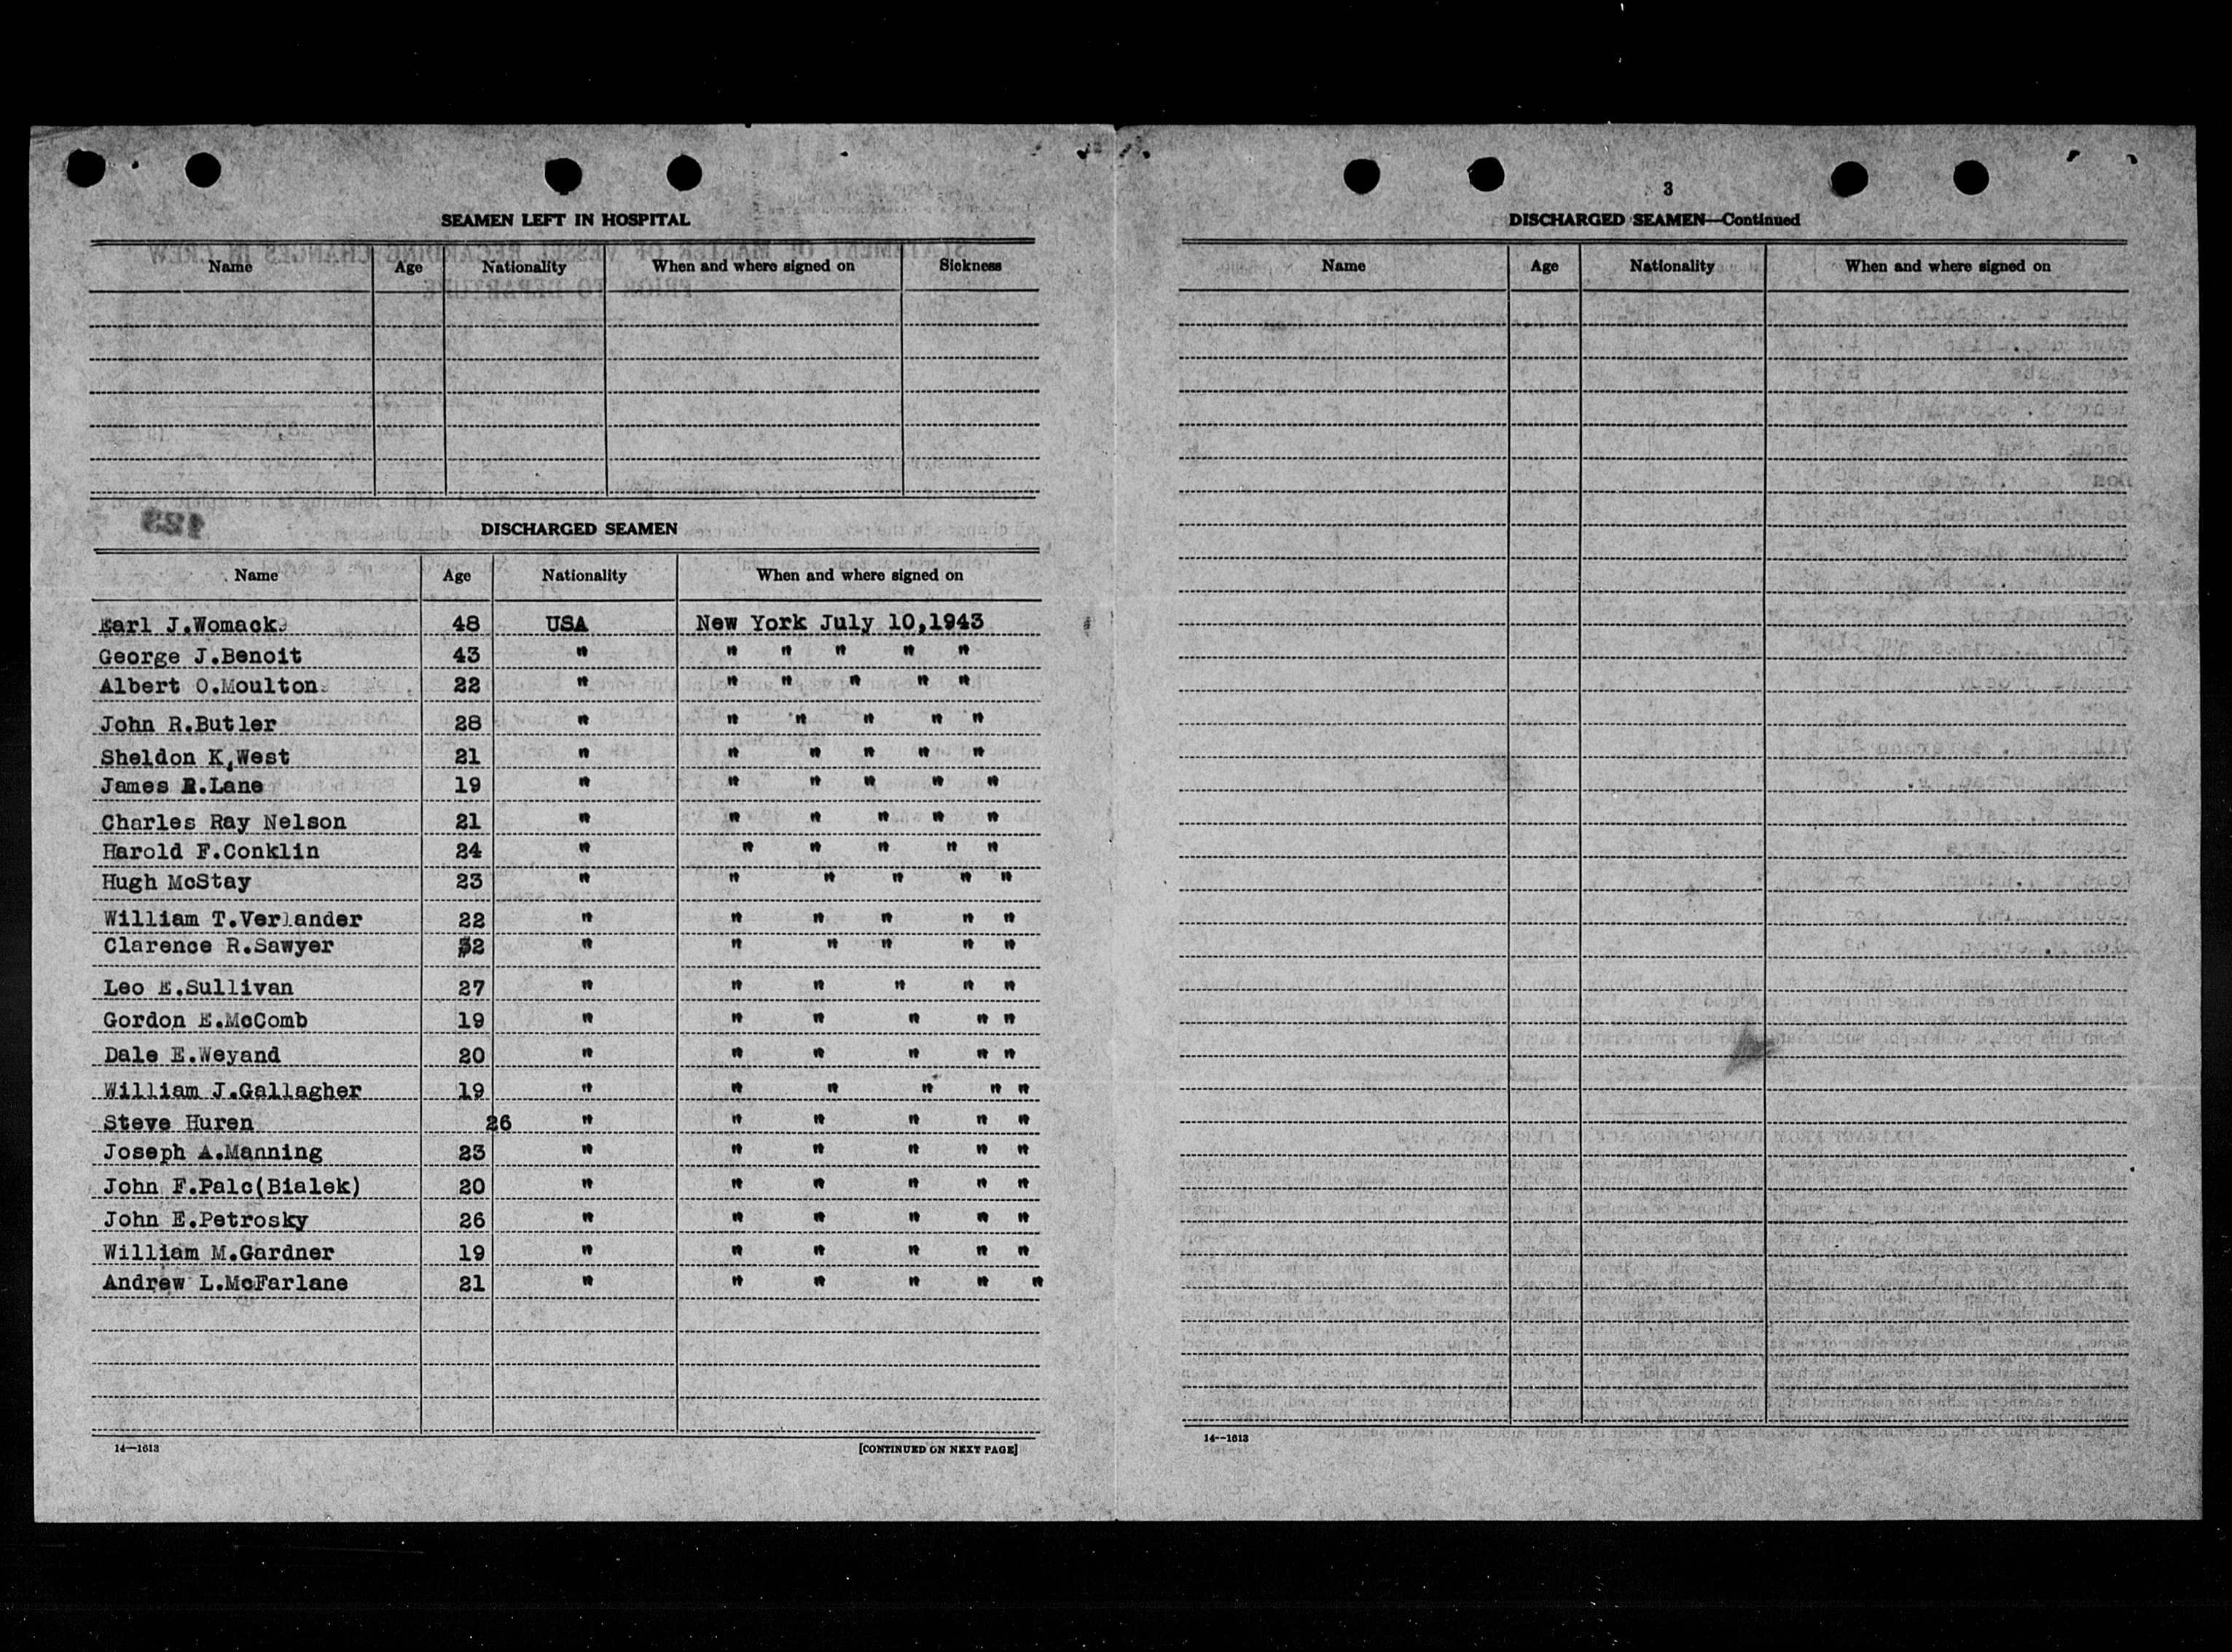 SEAMEN LEFT IN HOSPITAL
Name Age Nationality When and where signed on Sickness
DISCHARGED SEAMEN
Name Age Nationality When and where signed on
Earl J.Womack 48 USA New York July 10,1943
George J.Benoit 43 " " " " " "
Albert O.Moulton 22 " " " " " "
John R.Butler 28 " " " " " "
Sheldon K,West 21 " " " " " "
James R.Lane 19 " " " " " "
Charles Ray Nelson 21 " " " " " "
Harold F.Conklin 24 " " " " " "
Hugh McStay 23 " " " " " "
William T.Verlander 22 " " " " " "
Clarence R.Sawyer 32 " " " " " "
Leo E.Sullivan 27 " " " " " "
Gordon E.McComb 19 " " " " " "
Dale E.Weyand 20 " " " " " "
William J.Gallagher 19 " " " " " "
Steve Huren 26 " " " " " "
Joseph A.Manning 23 " " " " " "
John F.Palc(Bialek) 20 " " " " " "
John E.Petrosky 26 " " " " " "
William M.Gardner 19 " " " " " "
Andrew L.McFarlane 21 " " " " " "
14—1613 [CONTINUED ON NEXT PAGE]
3
DISCHARGED SEAMEN—Continued
Name Age Nationality When and where signed on
14—1613